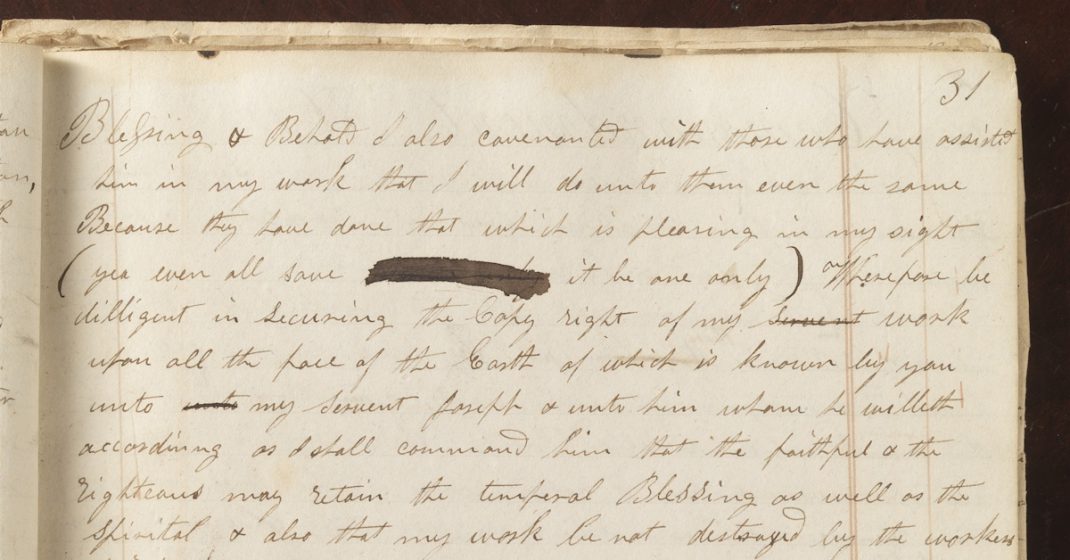 31
Blessing & Behold I also covenanted with those who have assisted
him in my work that I will do unto them even the same
Because they have done that which is pleasing in my sight
(yea even all save it be one only) Wherefore be
dilligent in Securing the Copy right of my Servent work
upon all the face of the Earth of which is known by you
unto unto my Servent Joseph & unto him whom he willeth
accordinng as I shall command him that the faithful & the
righteous may retain the temperal Blessing as well as the
spirital & also that my work be not destroyed by the workers